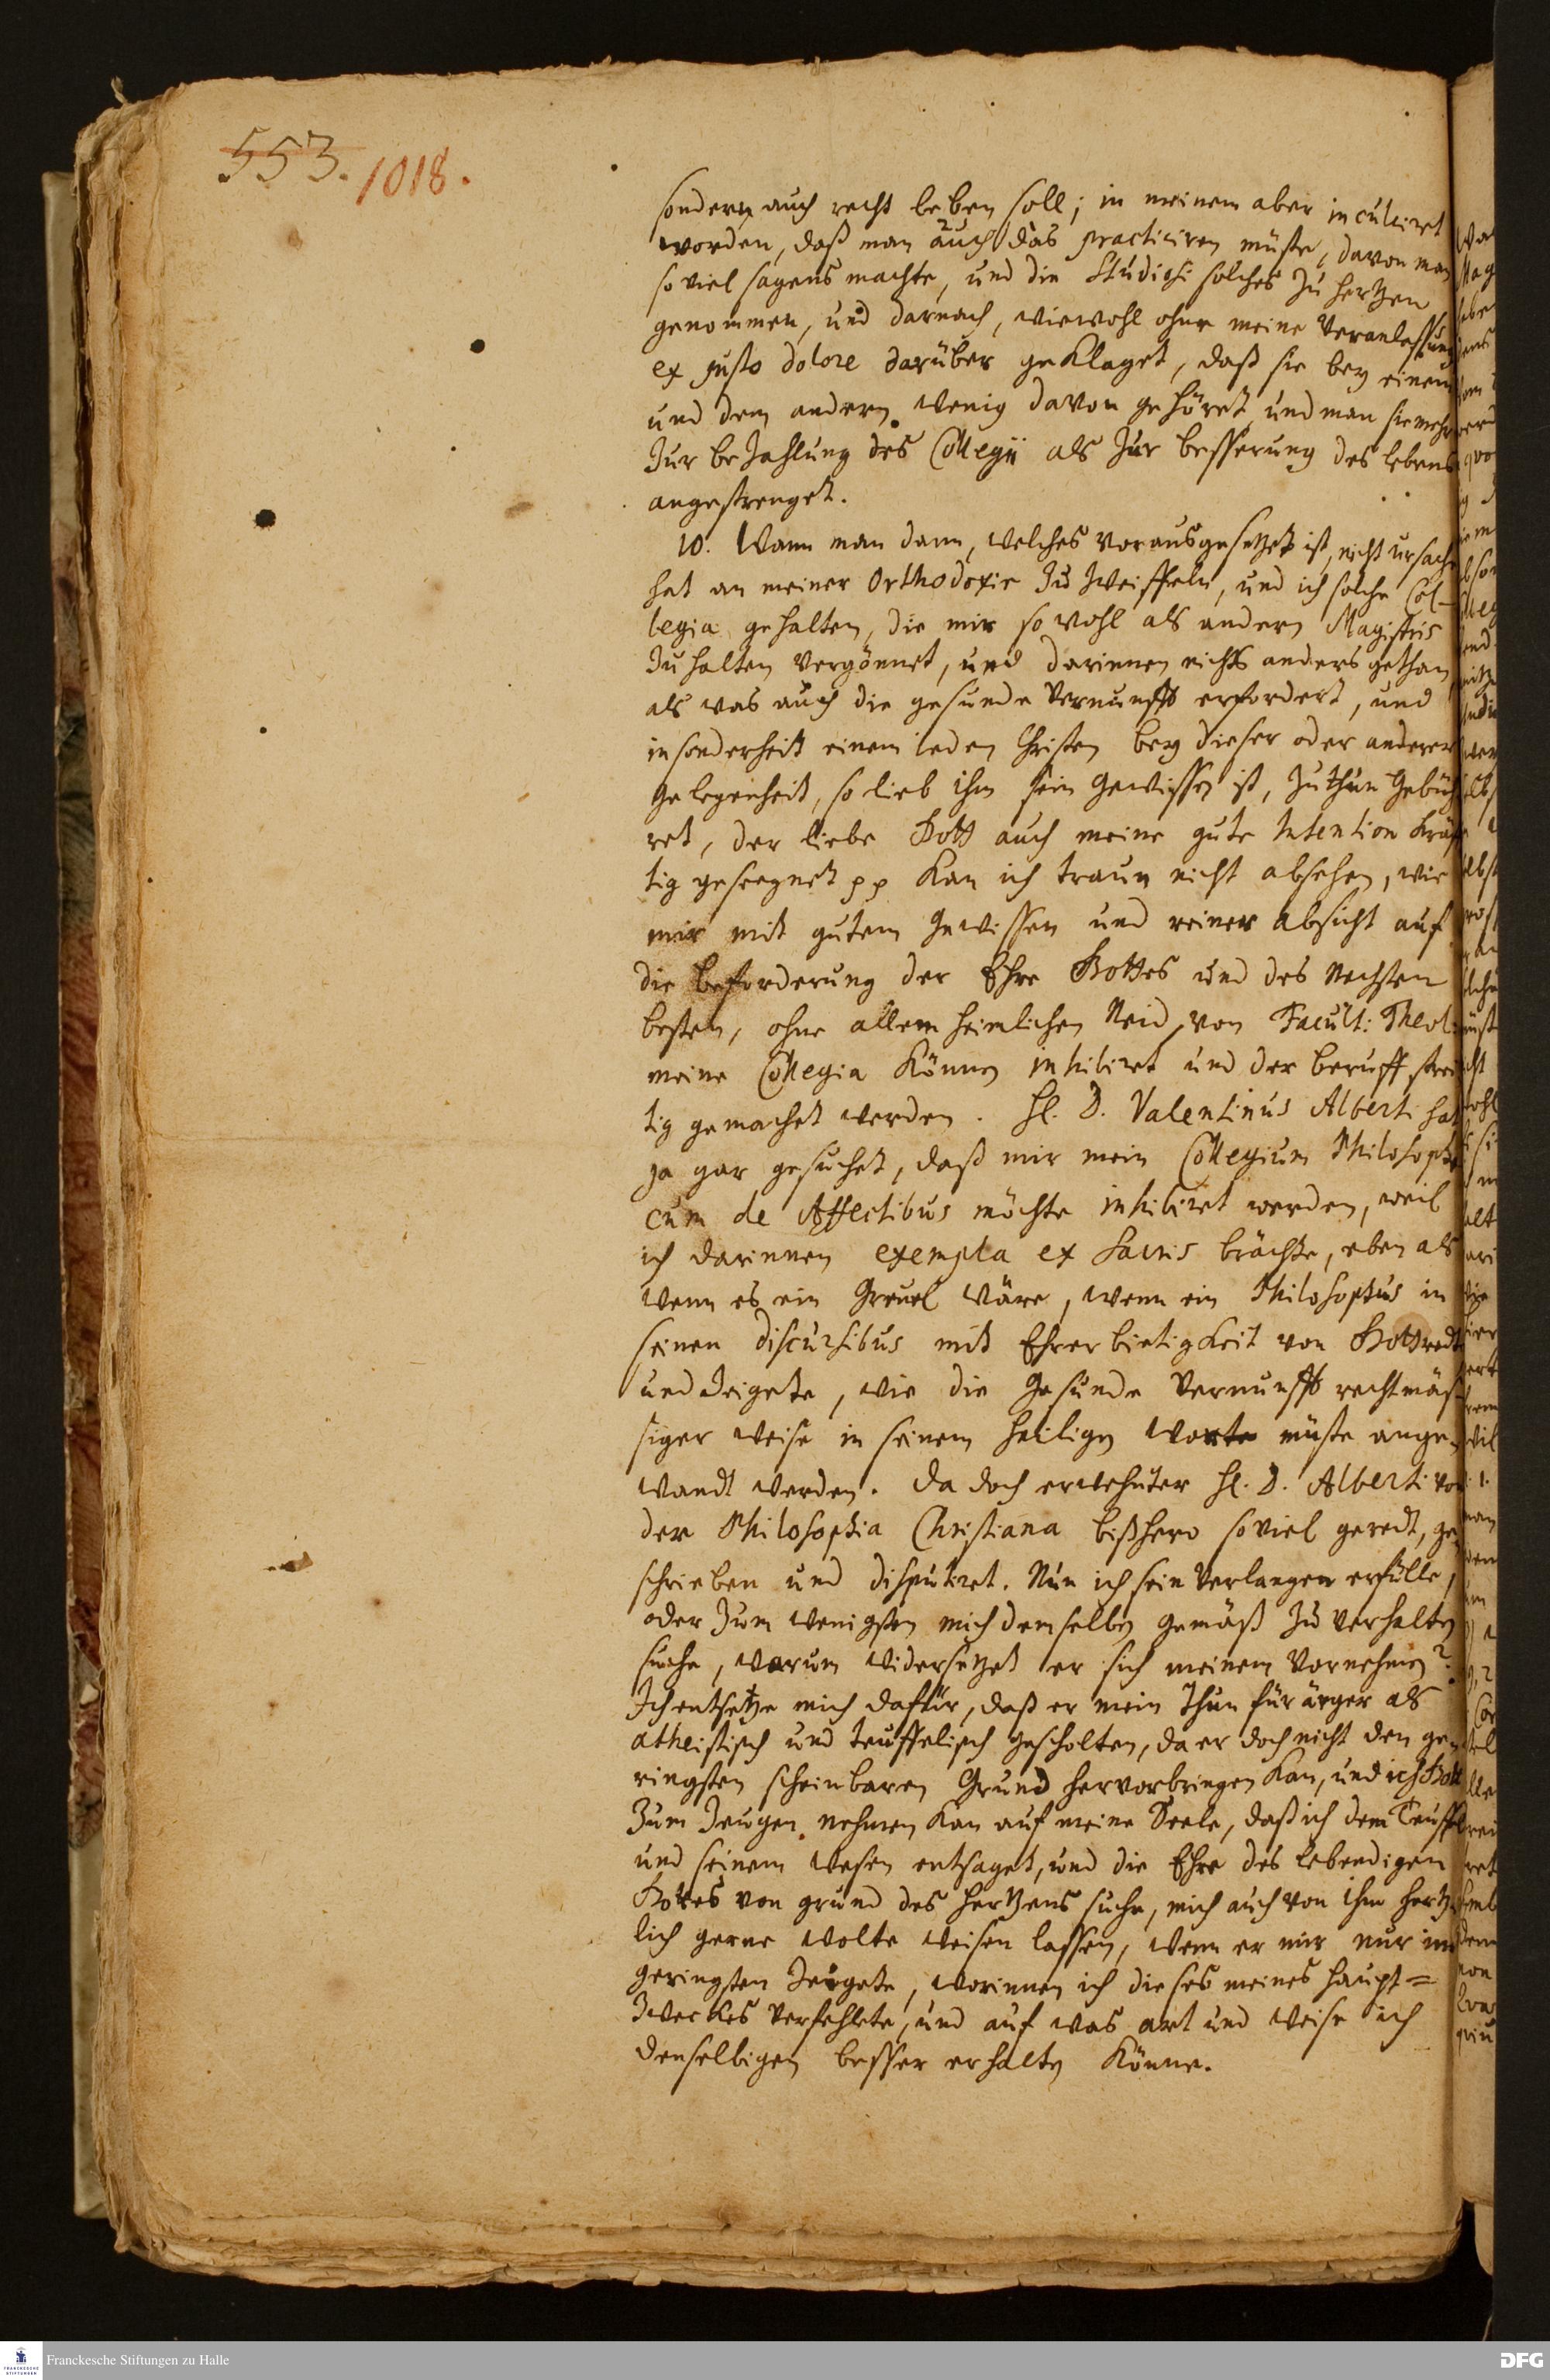 553. 1018.
sondern auch recht leben soll; in meinem aber inculciret
worden, daß man auch das practiciren müste, davon man
so viel sagens machte, und die Studiosi solches zu hertzen
genommen, und darnach, wiewohl ohne meine Veranlassung
ex justo dolore darüber geklaget, daß sie bey einem
und dem andern wenig davon gehöret, und man sie mehr
zur bezahlung des Collegii als zur besserung des lebens
angestrenget.
10. Wann man dann, welches vorausgesetzet ist, nicht ursach
hat an meiner Orthodoxie zu zweiffeln, und ich solche Col-
legia gehalten, die mir so wohl als andern Magistris
zu halten vergönnet, und darinnen nichts anders gethan,
als was auch die gesunde Vernunfft erfordert, und
insonderheit einem ieden Christen bey dieser oder anderer
gelegenheit, so lieb ihm sein gewissen ist, zuthun gebüh
ret, der liebe Gott auch meine gute Intention kräf
tig geseegnet pp kan ich traun nicht absehen, wie
mir mit gutem gewissen und reiner absicht auf
die beforderung der Ehre Gottes und des Nechsten
besten, ohne allem heimlichen Neid, von Facult: Theol:
meine Collegia können inhibiret und der beruff strei
tig gemachet werden. H. D. Valentinus Alberti hat
ja gar gesuchet, daß mir mein Collegium Philosophi
cum de Affectibus möchte inhibiret werden, weil
ich darinnen exempla ex Sacris brächte, eben als
wenn es ein Greuel wäre, wenn ein Philosophus in
seinen discursibus mit Ehrerbietigkeit von Gott redt
und zeigete, wie die gesunde Vernunfft rechtmäs
siger weise in seinem heiligen Worte müste ange
wandt werden. Da doch erwehnter H. D. Alberti von
der Philosophia Christiana bißhero so viel geredt, ge
schrieben und disputiret. Nun ich sein Verlangen erfülle,
oder zum wenigsten mich demselben gemäß zu verhalten
suche, warum widersetzet er sich meinem Vornehmen?
Ich entsetze mich dafür, daß er mein Thun für ärger als
atheistisch und teuffelisch gescholten, da er doch nicht den ge
ringsten scheinbaren Grund hervorbringen kan, und ich Gott
zum Zeugen nehmen kan auf meine Seele, daß ich dem Teuffel
und seinem Wesen entsaget, und die Ehre des lebendigen
Gottes von grund des hertzens suche, mich auch von ihm hertz
lich gerne wolte weisen lassen, wenn er mir nur im
geringsten zeigete, worinnen ich dieses meines haupt=
zweckes verfehlete, und auf was art und weise ich
denselbigen besser erhalten könne.
Franckesche Stiftungen zu Halle
DFG